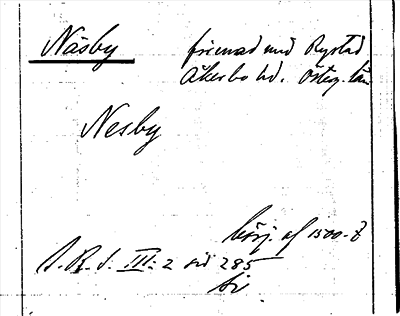 Näsby förenad med Rystad
Åkerbo hd. Östg. län
Nesby
börj. af 1500-t
S.R.S. III:2 sid 285